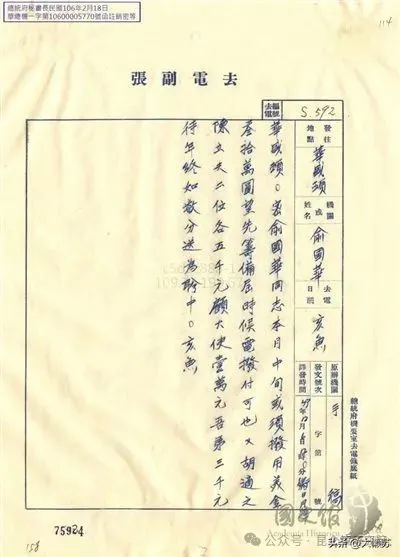 總統府秘書長民國106年2月18日
華總機一字第10600005770號函註銷密等
114
去電副張
去電編號 S.592
發往地點 華盛頓 機關或姓名 俞國華 去電日期 亥魚
原辦機關 手稿 發文號次 字第 號 譯發時間
華盛頓○密俞國華同志本月中旬或須撥用美金
叁拾萬圓望先籌備屆時候電撥付可也又胡適之
陳立夫二位各五千元顧大使壹萬元吾弟三千元
待年終如數分送為盼中○亥魚
總統府機要室去電抄底紙
75924
158
國史館
Academia Historica
公众号
头条